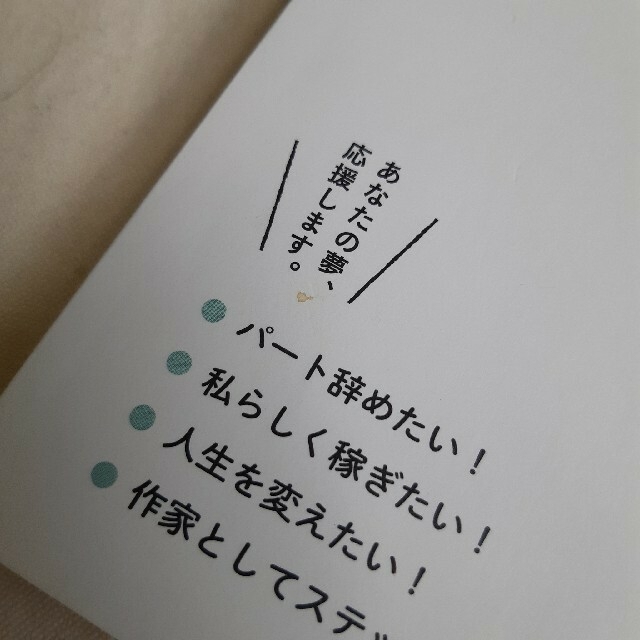 あなたの夢、
応援します。
パート辞めたい！
私らしく稼ぎたい！
人生を変えたい！
作家としてステッ